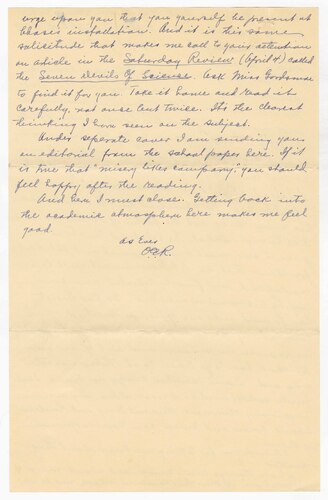 urge upon you that you yourself be present at
Chase's installation. And it is this same
solicitude that makes me call to your attention
an article in the Saturday Review (April 4) called
the Seven Devils of Science. Ask Miss
to find it for you. Take it home and read it
carefully, not once but twice. Its the clearest
thinking I ever seen on the subject.
Under seperate cover I am sending you
an editorial from the school paper here. If it
is true that "misery likes company," you should
feel happy after the reading.
And here I must close. Getting back into
the academic atmosphere here makes me feel
good.
As Ever